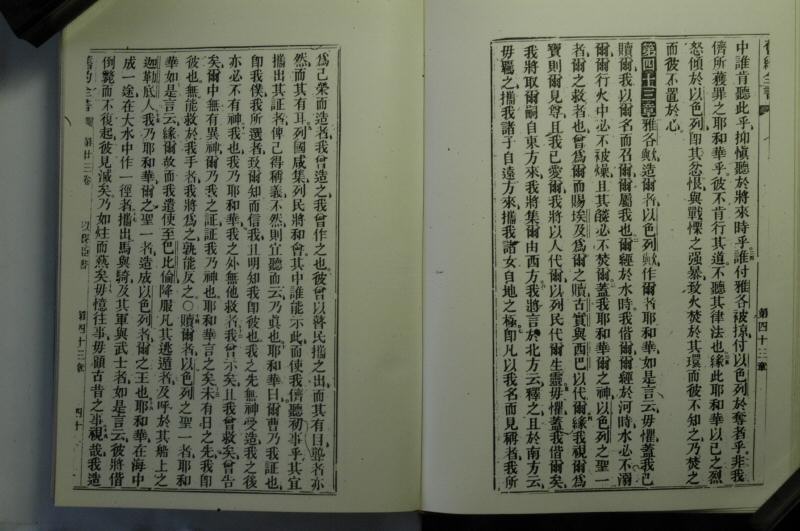 舊約全書
中誰肯聽此乎抑愼聽於將來時乎誰付雅各被掠付以色列於奪者乎非我
儕所獲罪之耶和華乎彼不肯行其道不聽其律法也緣此耶和華以己之烈
怒傾於以色列即其忿恨與戰慄之强暴致火焚於其環而彼不知之乃焚之
而彼不置於心
第四十三章雅各歟造爾者以色列歟作爾者耶和華如是言云毋懼蓋我已
贖爾我以爾名而召爾爾屬我也爾經於水時我偕爾爾經於河時水必不溺
爾爾行火中必不被燥且其燄必不焚爾蓋我耶和華爾之神以色列之聖一
者爾之救者也曾爲爾而賜埃及爲爾之贖古實與西巴以代爾緣我視爾爲
寶則爾見尊且我已愛爾我將以人代爾以列民代爾生靈毋懼蓋我偕爾矣
我將取爾嗣自東方來我將集爾由西方我將言於北方云釋之且於南方云
毋覊之攜我諸子自遠方來攜我諸女自地之極即凡以我名而見稱者我所
第四十三章
爲己榮而造者我曾造之我曾作之也彼曾以瞽民攜之出而其有目雖者亦
然而其有耳列國咸集列民將和會其中誰能示此而使我儕聽初事乎其宜
攜出其証者俾己得稱義不然則宜聽而云乃眞也耶和華曰爾曹乃我証也
即我僕我所選者致爾知而信我且明知我即彼也我之先無神受造我之後
亦必不有神我也我乃耶和華我之外無他救者我曾示矣且我曾救矣曾告
矣爾中無有異神爾乃我之証我乃神也耶和華言之矣未有日之先我即
彼也無能救於我手者我將爲之孰能反之〇贖爾者以色列之聖一者耶和
華如是言云緣爾故而我遣使至巴比倫降服凡其逃遁者及呼於其船上之
迦勒底人我乃耶和華爾之聖一者造成以色列者爾之王也耶和華在海中
成一途在大水中作一徑者攜出馬與騎及其軍與武士者如是言云彼將偕
倒斃而不復起彼見滅矣乃如炷而熄矣毋憶往事毋顧古昔之事視哉我造
舊約全書 第廿三卷 以賽亞書 第四十三章 四十